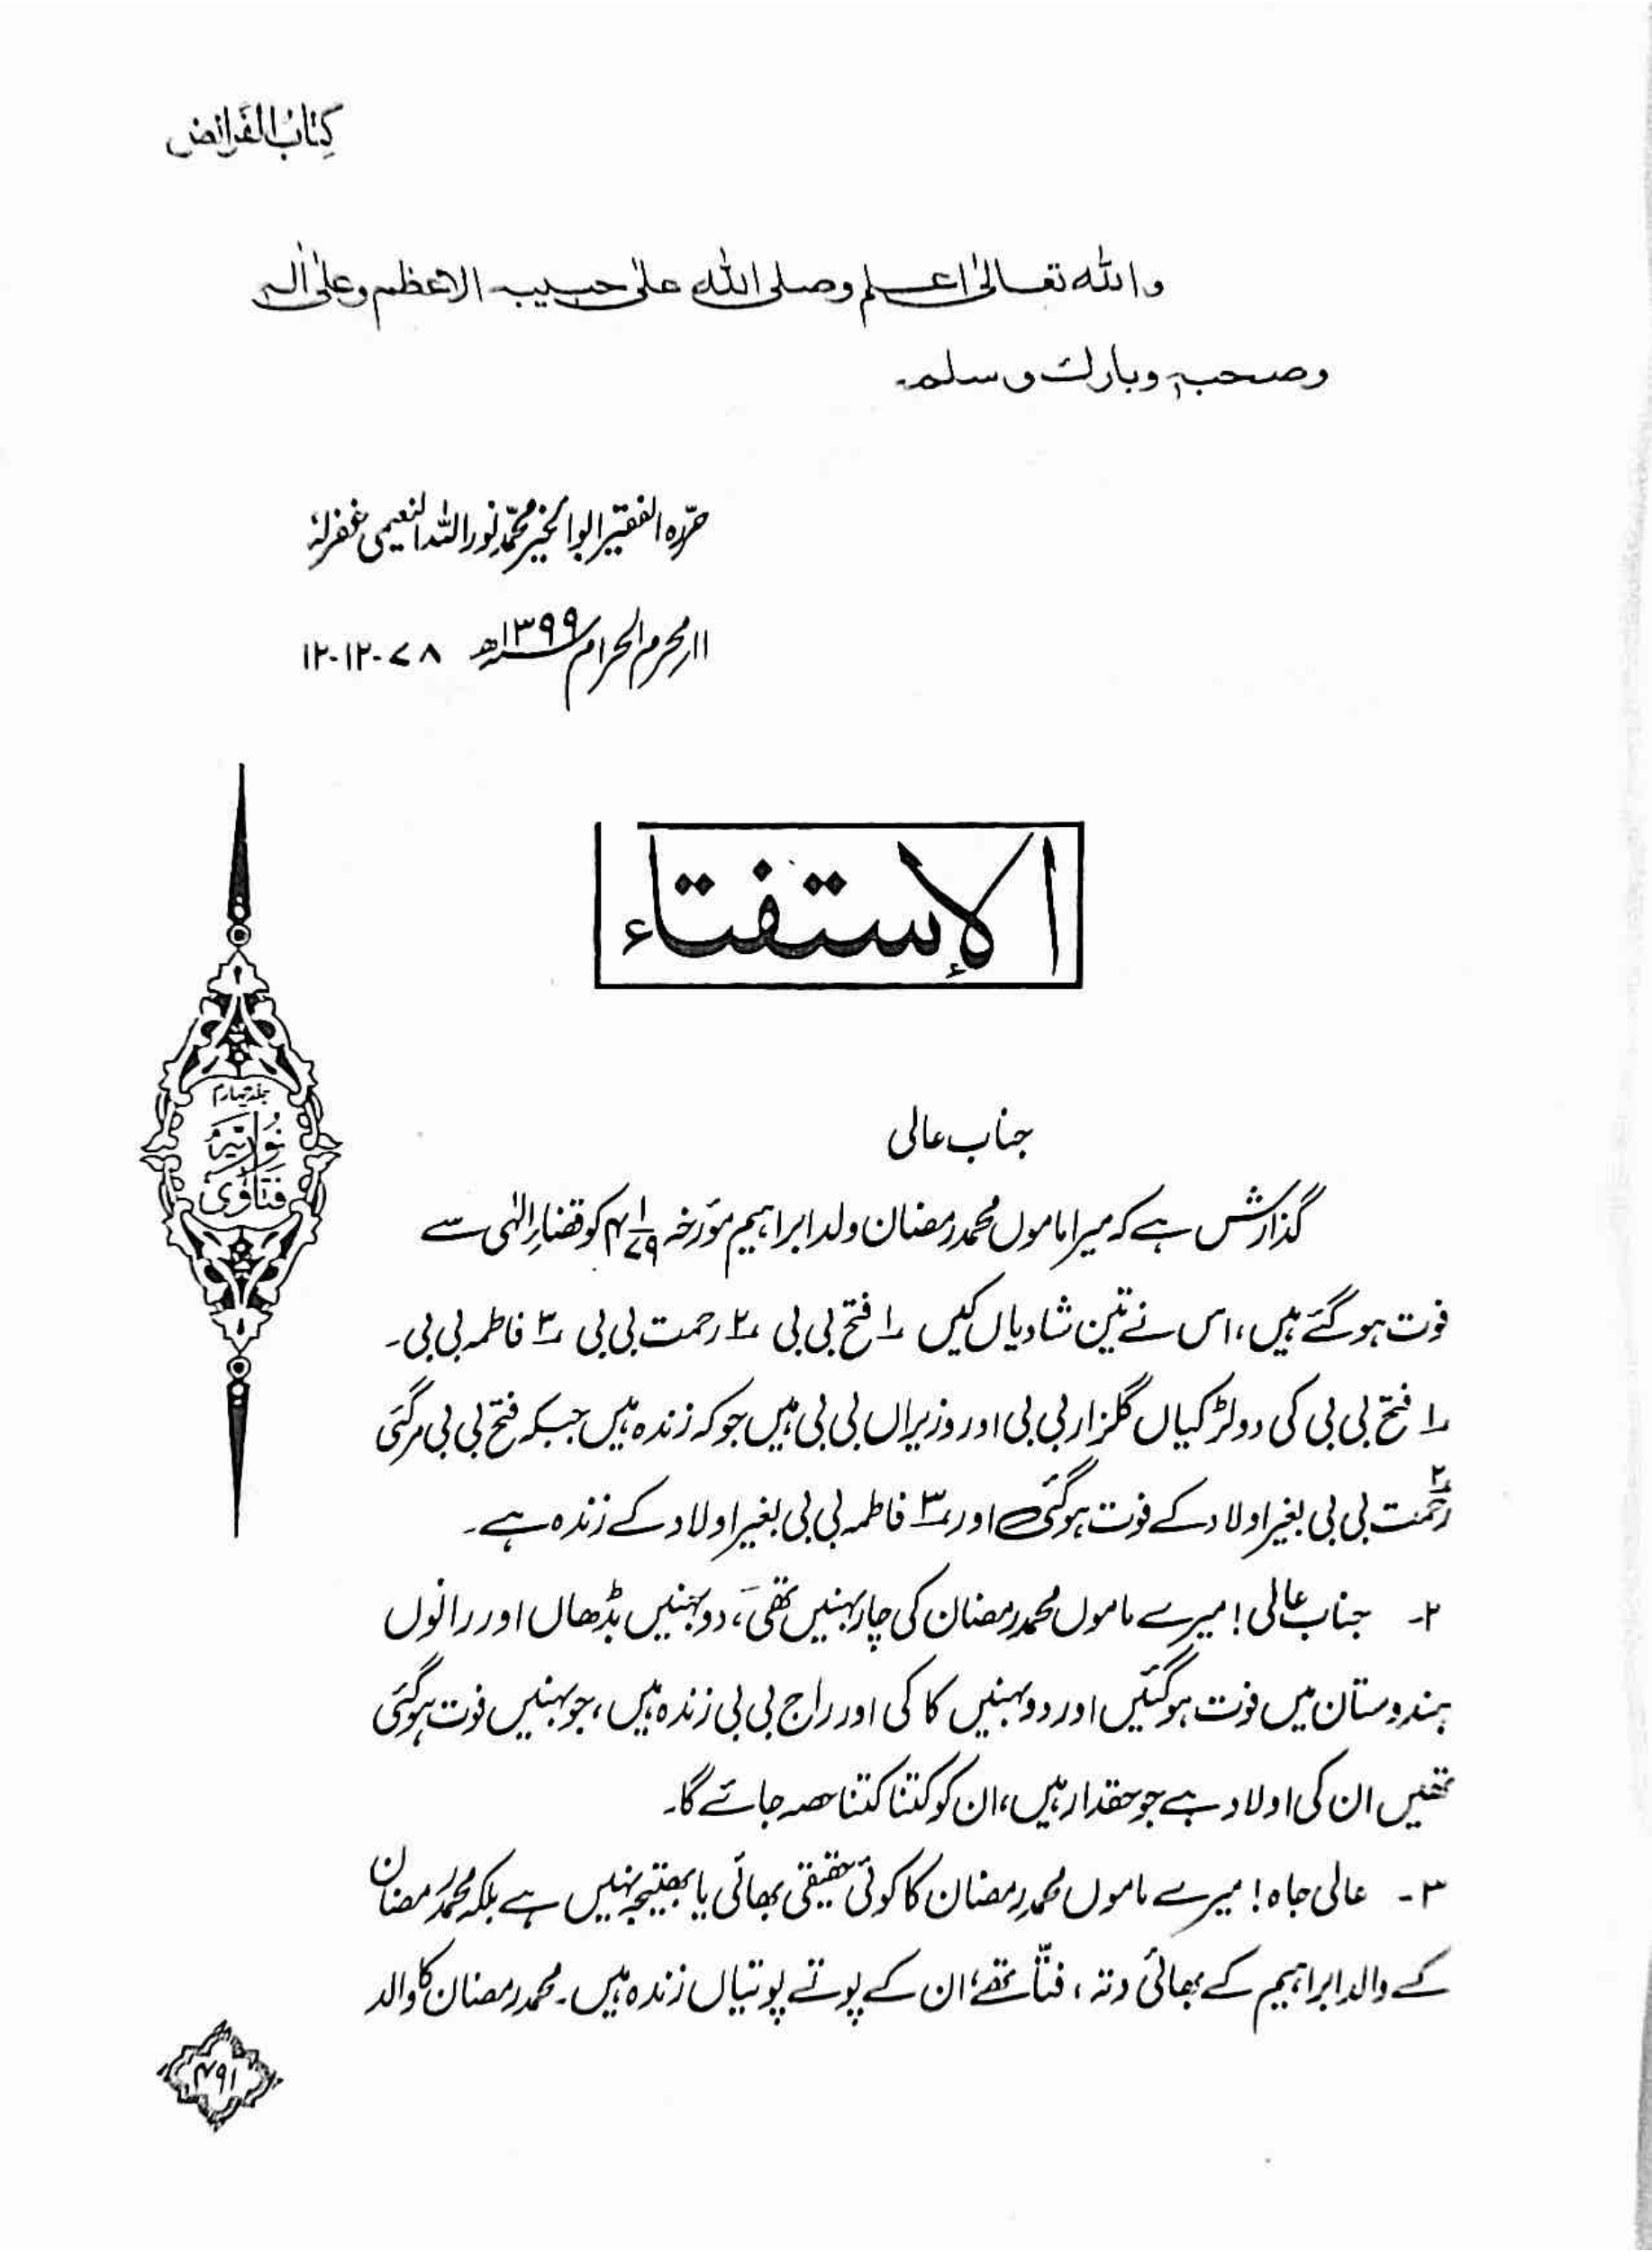 کتاب الفرائض
والله تعالیٰ اعلم وصلی الله علیٰ حبیبہ الاعظم وعلیٰ اٰلہ
وصحبہ وبارك وسلم۔
حرّرہ الفقیر ابوالخیر محمّد نور اللہ النعیمی غفرلہٗ
۱۱؍محرم الحرام ۱۳۹۹ھ ۷۸-۱۲-۱۲
الإستفتاء
جناب عالی
گذارش ہے کہ میرا ماموں محمد رمضان ولد ابراہیم مؤرخہ ۴ ۱/۷۹ کو قضاءِ الٰہی سے
فوت ہو گئے ہیں، اس نے تین شادیاں کیں ۱؎ فتح بی بی ۲؎ رحمت بی بی ۳؎ فاطمہ بی بی۔
۱؎ فتح بی بی کی دو لڑکیاں گلزار بی بی اور وزیراں بی بی ہیں جو کہ زندہ ہیں جبکہ فتح بی بی مر گئی
۲؎ رحمت بی بی بغیر اولاد کے فوت ہو گئی اور ۳؎ فاطمہ بی بی بغیر اولاد کے زندہ ہے۔
۲- جناب عالی! میرے ماموں محمد رمضان کی چار بہنیں تھی، دو بہنیں بڈھاں اور رانوں
ہندوستان میں فوت ہو گئیں اور دو بہنیں کاکی اور راج بی بی زندہ ہیں، جو بہنیں فوت ہو گئی
تھیں ان کی اولاد ہے جو حقدار ہیں، ان کو کتنا کتنا حصہ جائے گا۔
۳- عالی جاہ! میرے ماموں محمد رمضان کا کوئی حقیقی بھائی یا بھتیجہ نہیں ہے بلکہ محمد رمضان
کے والد ابراہیم کے بھائی دتہ، فتّا تھے، ان کے پوتے پوتیاں زندہ ہیں۔ محمد رمضان کا والد
جلد چہارم
نوریہ
فتاوٰی
۴۹۱